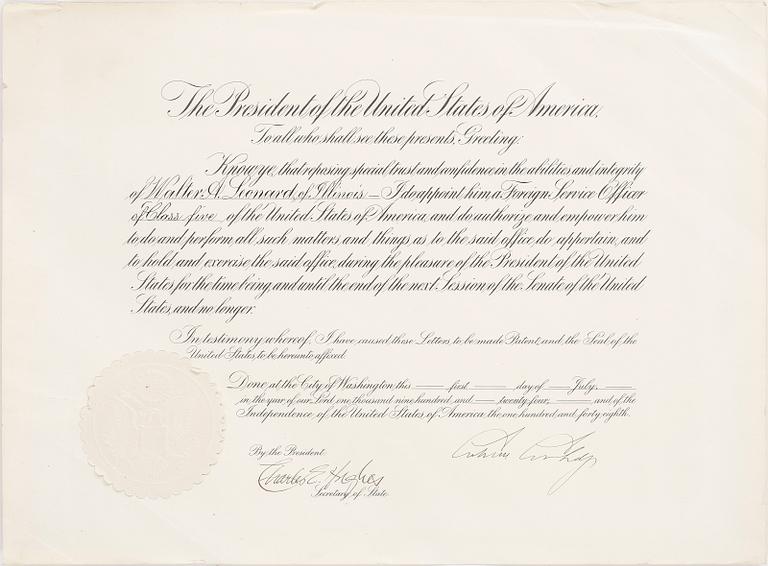 The President of the United States of America,
To all who shall see these presents, Greeting:
Know ye, that reposing special trust and confidence in the abilities and integrity
of Walter A. Leonard, of Illinois — I do appoint him a Foreign Service Officer
of Class five of the United States of America, and do authorize and empower him
to do and perform all such matters and things as to the said office do appertain, and
to hold and exercise the said office, during the pleasure of the President of the United
States for the time being, and until the end of the next Session of the Senate of the United
States, and no longer.
In testimony whereof, I have caused these Letters to be made Patent, and the Seal of the
United States to be hereunto affixed.
Done at the City of Washington this — first — day of — July, —
in the year of our Lord one thousand nine hundred and — twenty-four, — and of the
Independence of the United States of America the one hundred and forty-eighth.
By the President:
Calvin Coolidge
Charles E. Hughes
Secretary of State.